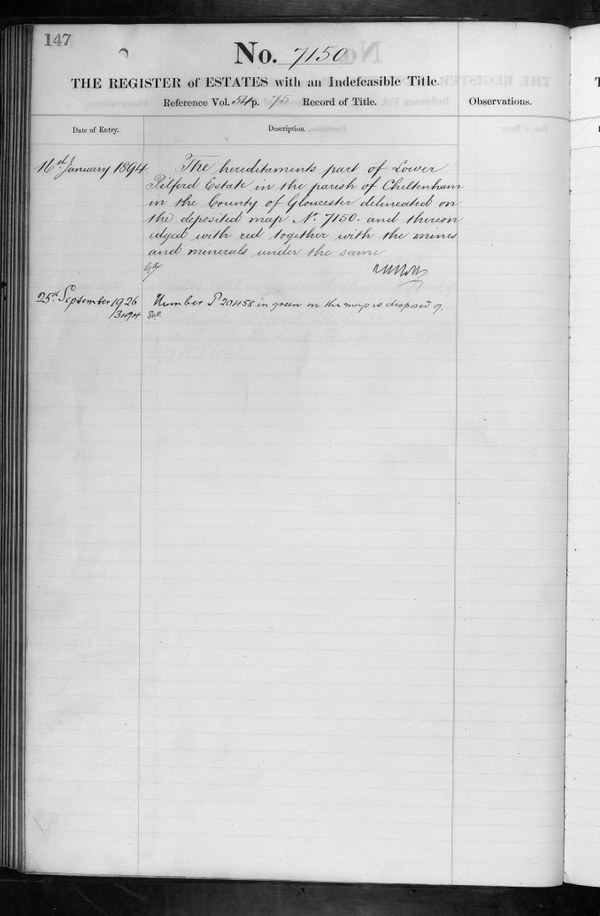 147
No. 7150
THE REGISTER of ESTATES with an Indefeasible Title.
Reference Vol. 54 p. 75 Record of Title.
Observations.
Date of Entry.
Description.
16th January 1894
The hereditaments part of Lower
Pilford Estate in the parish of Cheltenham
in the County of Gloucester delineated on
the deposited map No. 7150. and thereon
edged with red together with the mines
and minerals under the same
25th September 1926
Number P204458 in green on the map is disposed of.